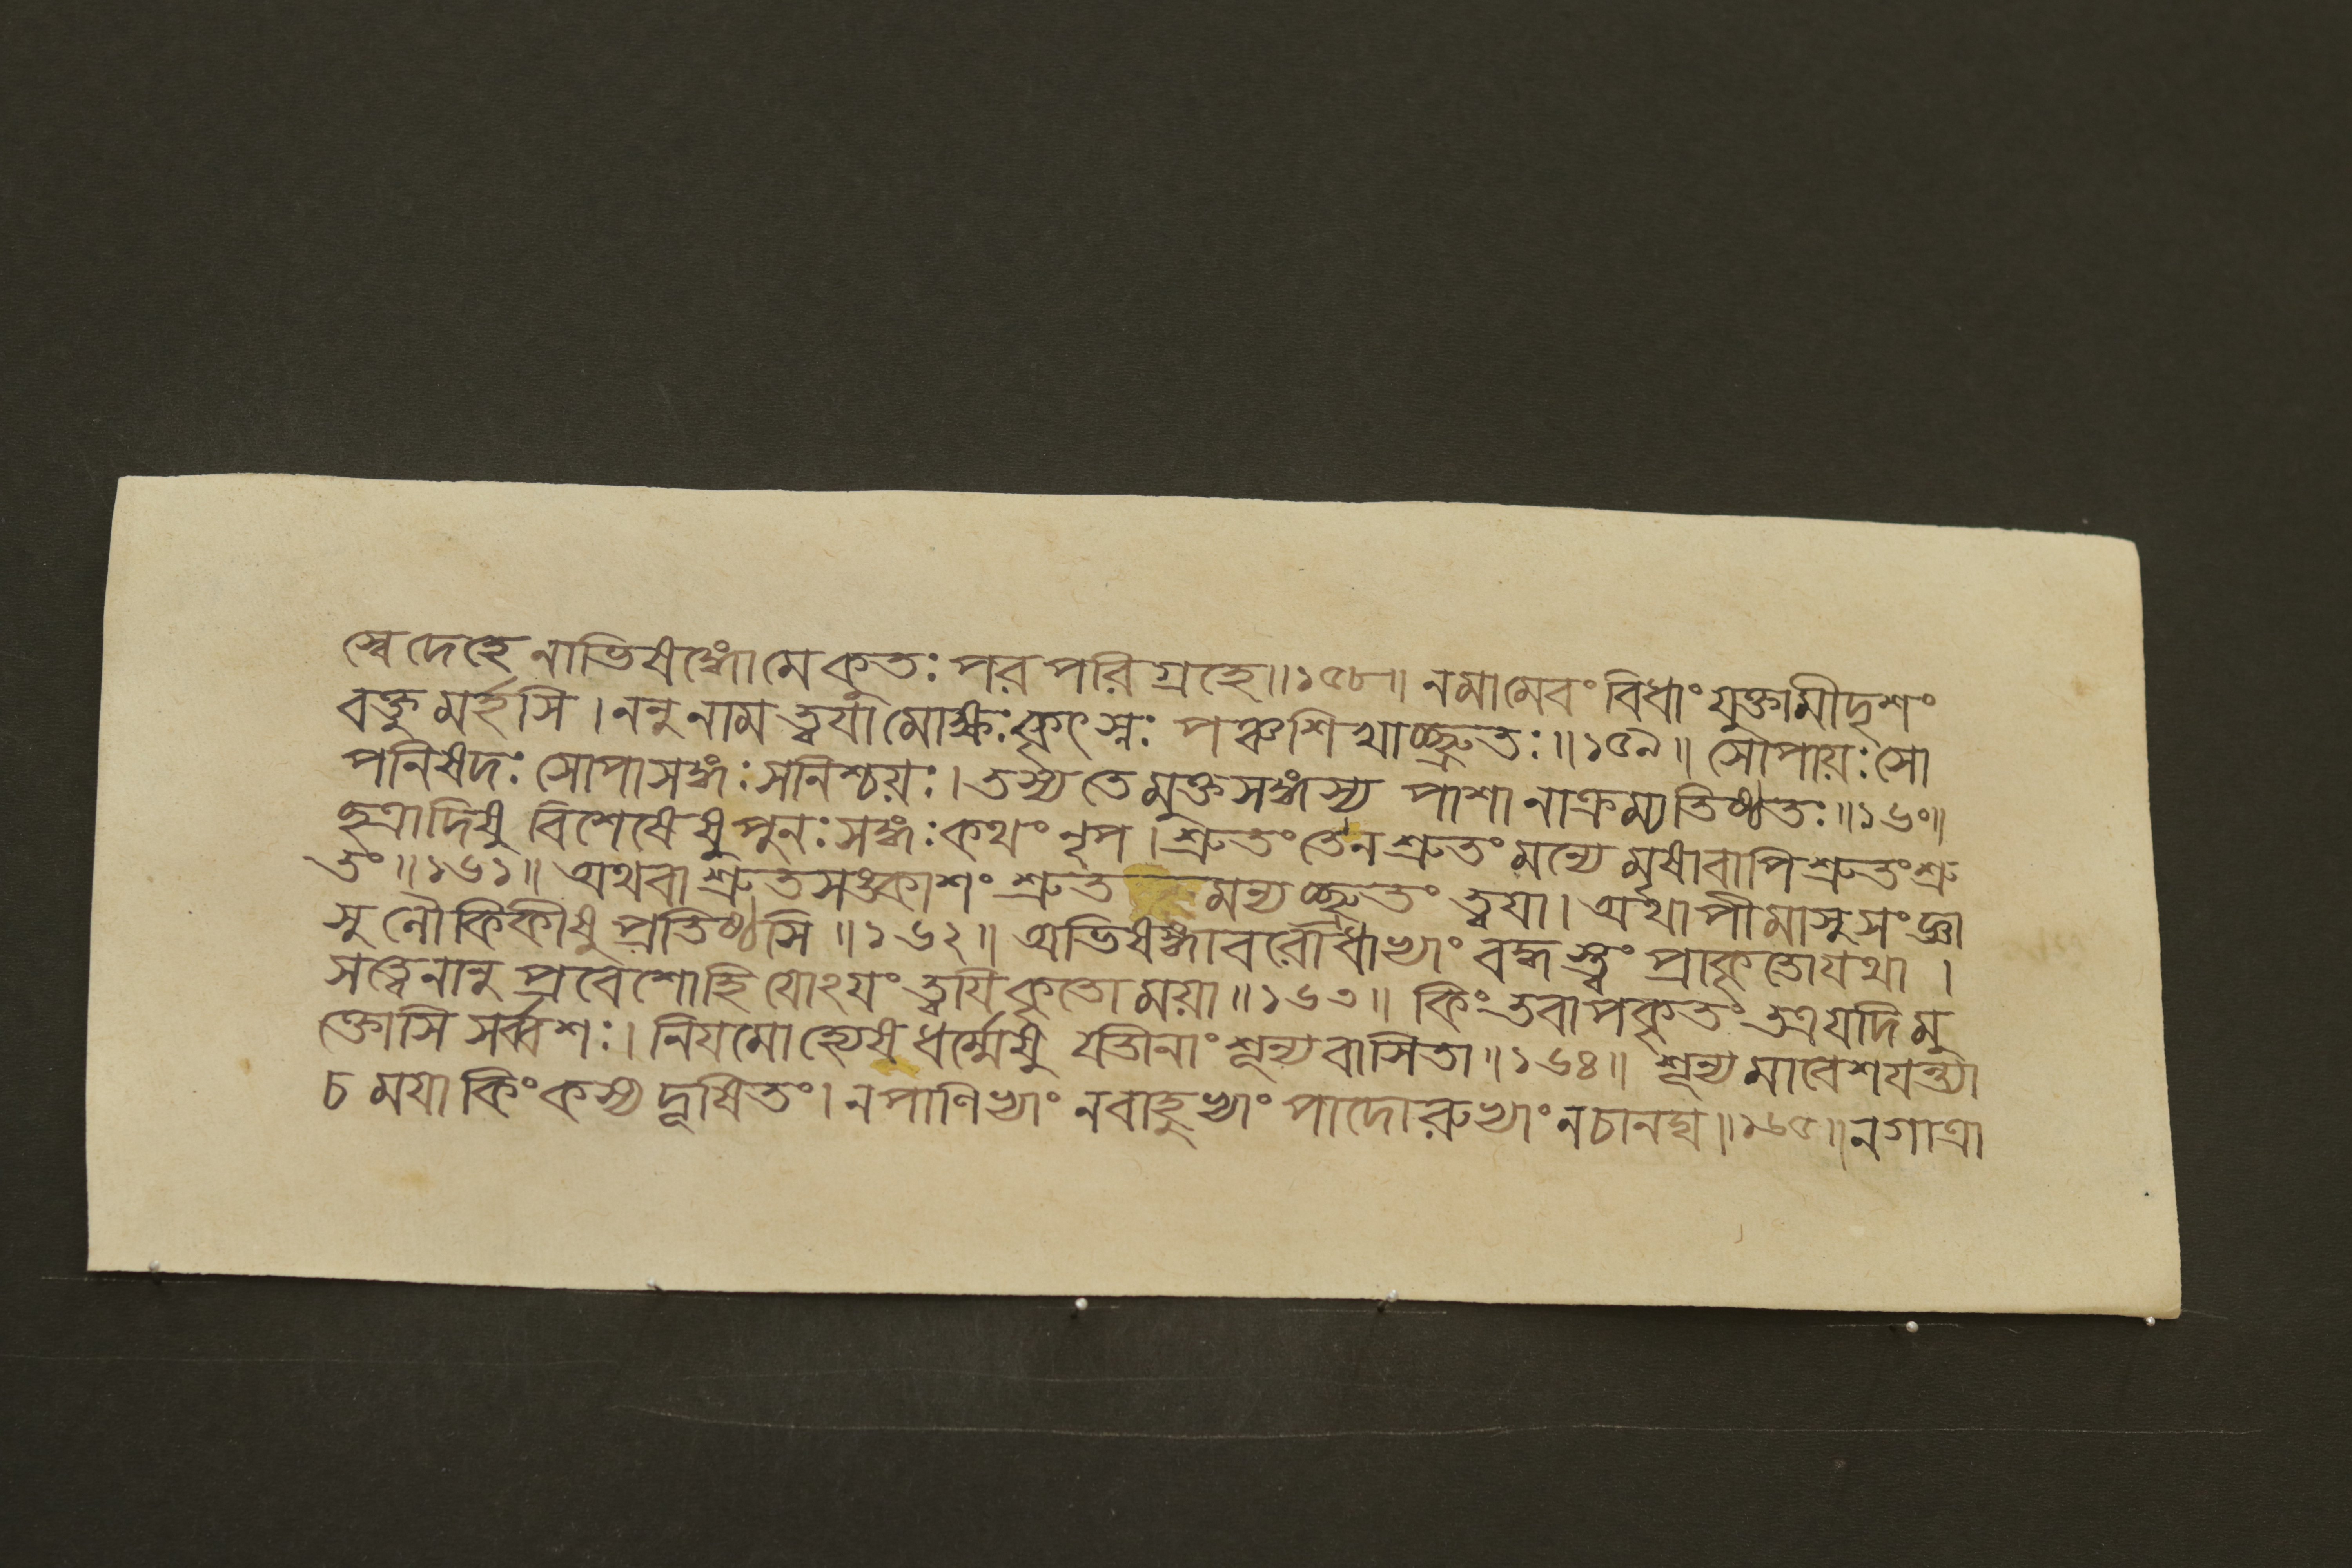 স্বে দেহে নাভিষঙ্গো মে কুতঃ পরপরিগ্রহে॥১৫৮॥ ন মামেবং বিধাং যুক্তামীদৃশং
বক্তু মর্হসি । ননু নাম ত্বয়া মোক্ষঃ কৃৎস্নঃ পঞ্চশিখাচ্ছ্রুতঃ॥১৫৯॥ সোপায়ঃ সো
পনিষদঃ সোপাসঙ্গঃ সনিশ্চয়ঃ। তস্য তে মুক্তসঙ্গস্য পাশানাক্রম্য তিষ্ঠতঃ॥১৬০॥
ছত্রাদিষু বিশেষেষু পুনঃ সঙ্গঃ কথং নৃপ । শ্রুতং তে ন শ্রুতং মন্যে মৃষা বাপি শ্রুতং শ্রু
তং॥১৬১॥ অথবা শ্রুতসঙ্কাশং শ্রুত মন্যচ্ছ্রুতং ত্বয়া । অথাপীমাসু সংজ্ঞা
সু লৌকিকীষু প্রতিষ্ঠসি ॥১৬২॥ অভিষঙ্গাবরোধাভ্যাং বদ্ধস্ত্বং প্রাকৃতো যথা ।
সত্ত্বেনানু প্রবেশো হি যোঽয়ং ত্বয়ি কৃতো ময়া॥১৬৩॥ কিং তবাপকৃতং তত্র যদি মু
ক্তোসি সর্ব্বশঃ। নিয়মো হ্যেষ ধর্ম্মেষু যতীনাং শূন্যবাসিতা॥১৬৪॥ শূন্যমাবেশয়ন্ত্যা
চ ময়া কিং কস্য দূষিতং। ন পাণিভ্যাং ন বাহুভ্যাং পাদোরুভ্যাং ন চানঘ॥১৬৫॥ ন গাত্রা